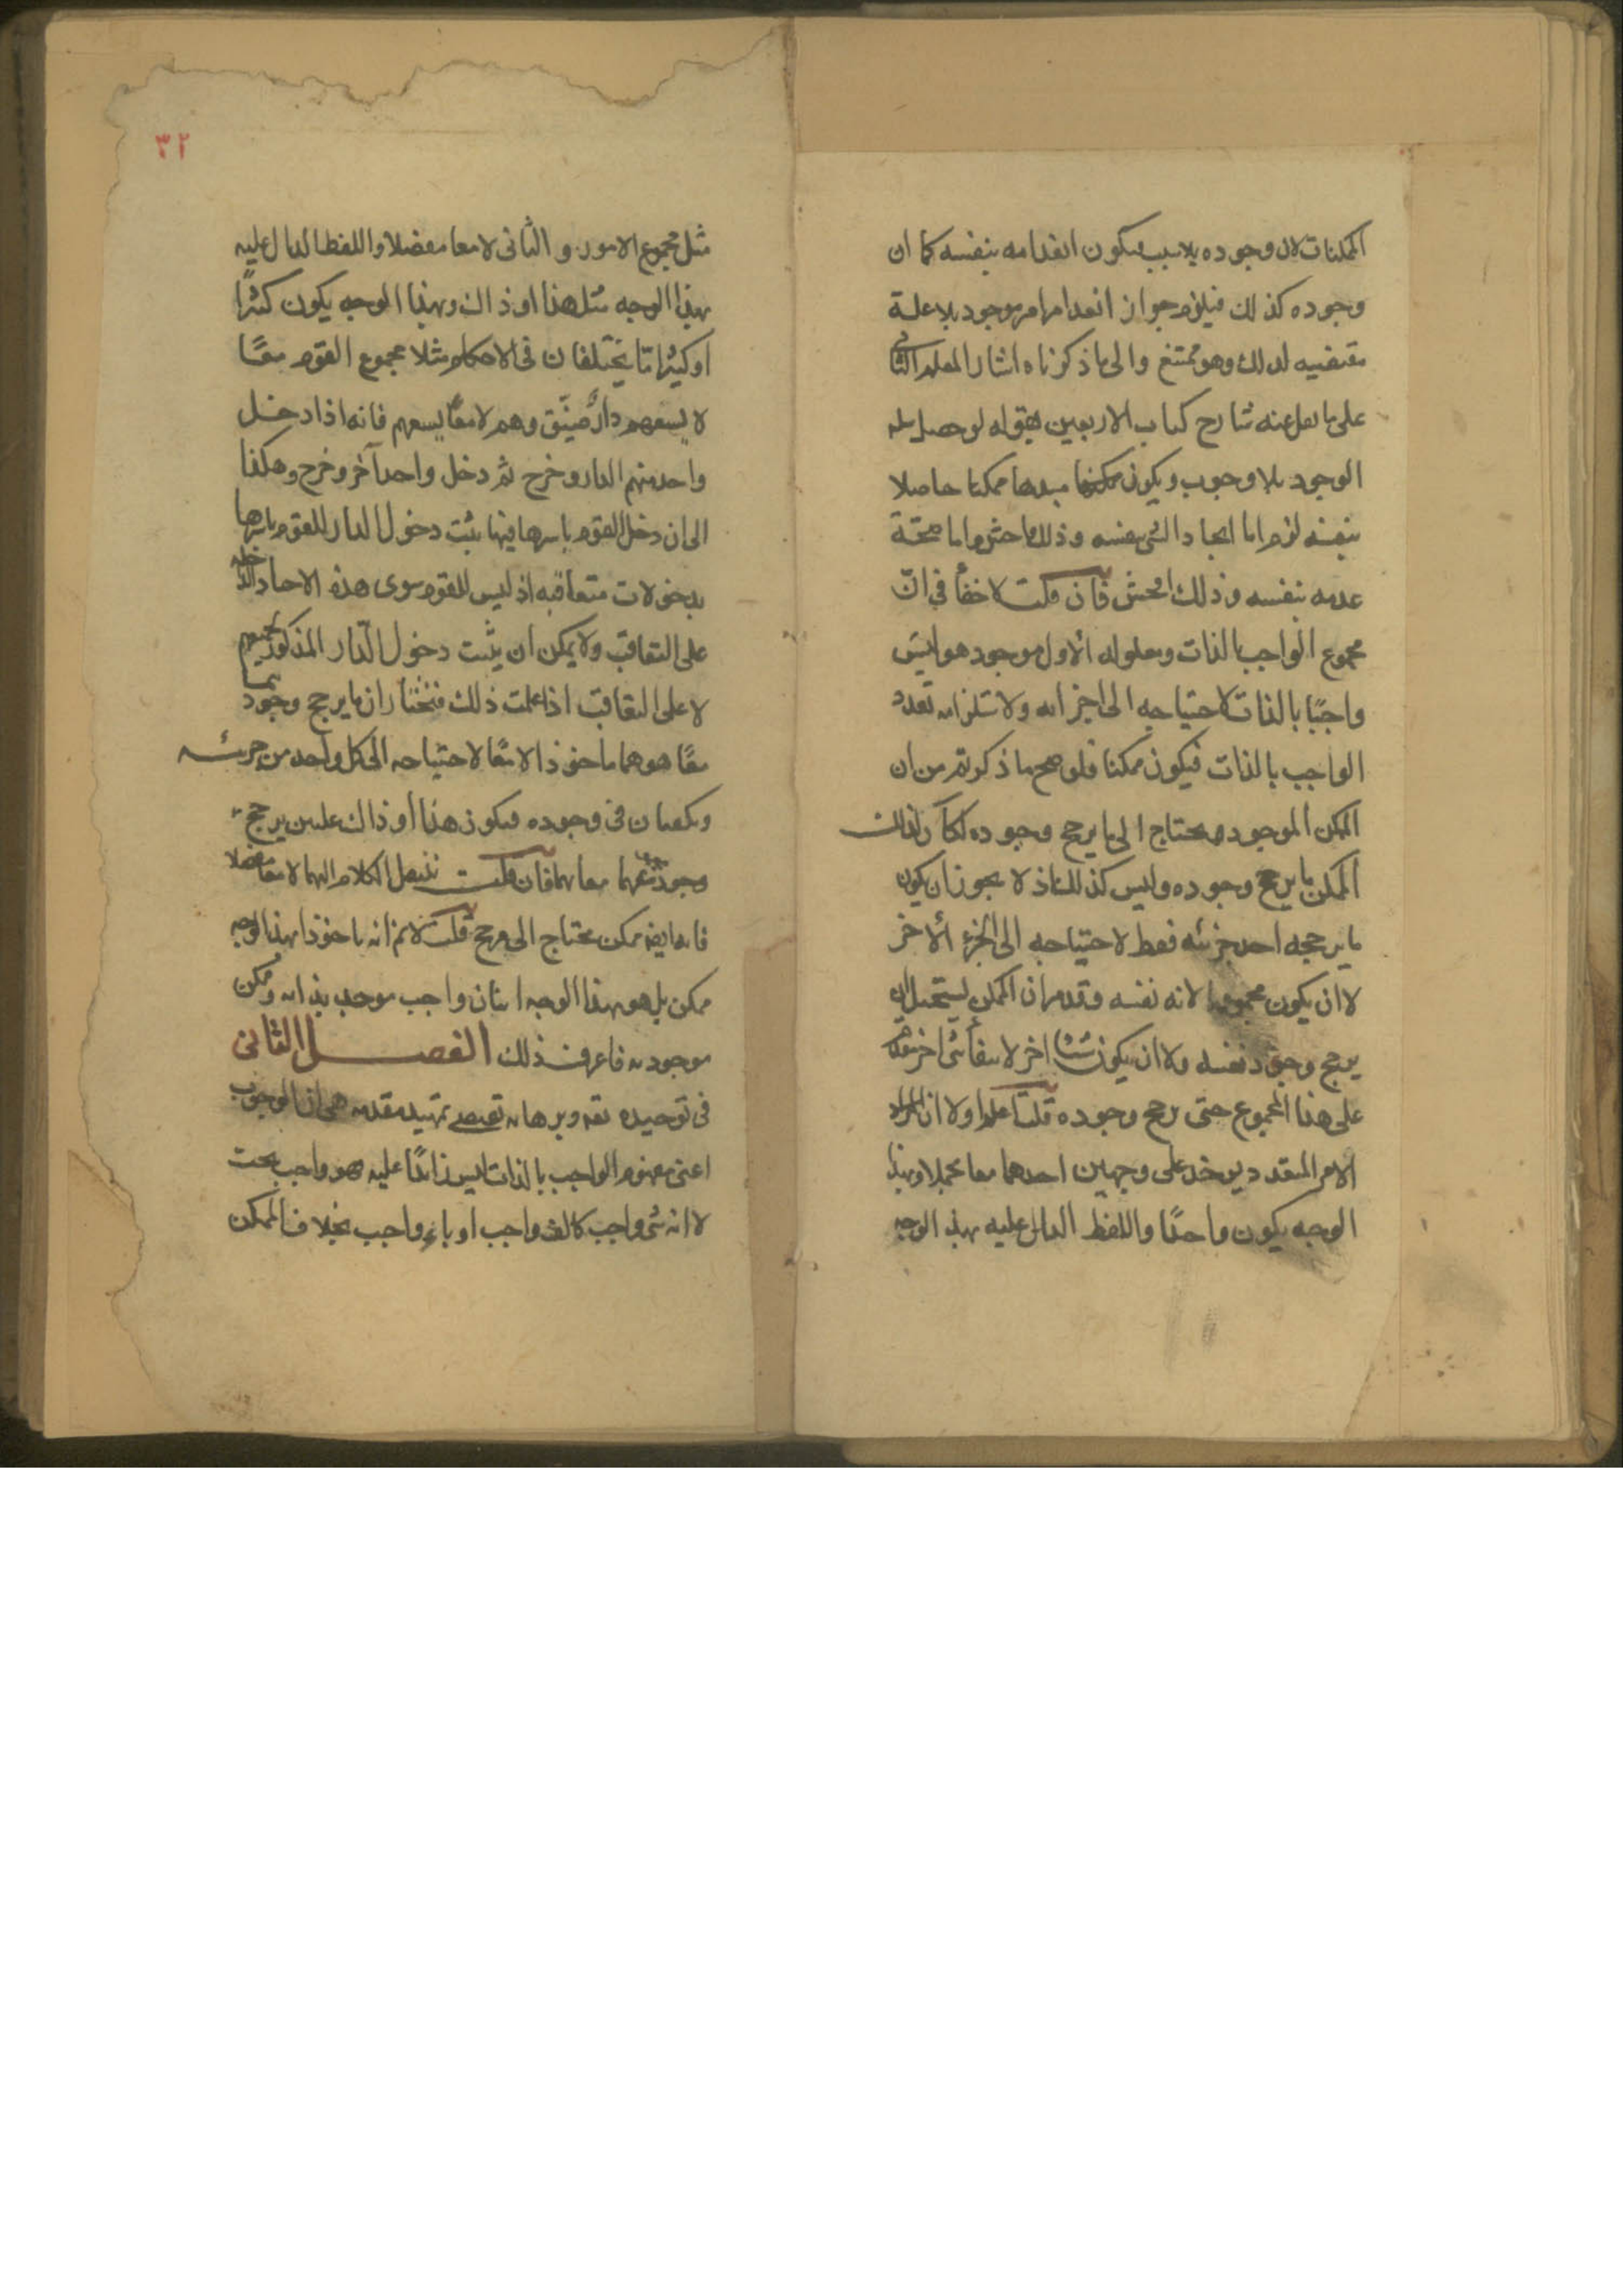 الممكنات لان وجوده بلا سبب فيكون انعدامه بنفسه كما ان
وجوده كذلك فيلزم جواز انعدام امر موجود بلا علة
مقتضيه لذلك وهو ممتنع والى ما ذكرناه اشار المعلم الثانى
على ما نقل عنه شارح كتاب الاربعين بقوله لو حصل سلسلة
الوجود بلا وجوب ويكون مبدءها ممكنا حاصلا
بنفسه لزم اما ايجاد الشئ نفسه وذلك فاحش واما صحة
عدمه بنفسه وذلك افحش فان قلت لا خفأ فى انّ
مجموع الواجب بالذات ومعلوله الاول موجود هو ليس
واجبًا بالذات لاحتياجه الى اجزائه ولاستلزامه تعدد
الواجب بالذات فيكون ممكنا فلو صح ما ذكرتم من ان
الممكن الموجود محتاج الى ما يرجح وجوده لكان لذلك
الممكن ما يرجح وجوده وليس كذلك اذ لا يجوز ان يكون
ما يرجحه احد جزئه فقط لاحتياجه الى الجزء الاخر
لا ان يكون مجموعهما لانه نفسه وقد مر ان الممكن يستحيل ان
يرجح وجود نفسه ولا ان يكون شيئا اخر لانتفأ شئ اخر يتقدم
على هذا المجموع حتى يرجح وجوده قلت اعلم اولا ان المراد
الامر المتعدد يؤخذ على وجهين احدهما معا مجملا وبهذا
الوجه يكون واحدًا واللفظ الدال عليه بهذا الوجه
٣٢
مثل مجموع الامور والثانى لا معا مفصلا واللفظ الدال عليه
بهذا الوجه مثل هذا او ذاك وبهذا الوجه يكون كثيرًا
او كثيرا ما يختلفان فى الاحكام مثلا مجموع القوم معًا
لا يسعهم دار ضيّق وهم لا معًا يسعهم فانه اذا دخل
واحد منهم الدار وخرج ثم دخل واحد آخر وخرج وهكذا
الى ان دخل القوم باسرها فيها ثبت دخول الدار للقوم باسرها
بدخولات متعاقبه اذ ليس للقوم سوى هذه الاحاد الداخله
على التعاقب ولا يمكن ان يثبت دخول الدار المذكور لجميعهم
لا على التعاقب اذا علمت ذلك فنختار ان ما يرجح وجودهما
معًا هو هما ماخوذا لا معًا لاحتياجه الى كل واحد من جزئه
ويكفيان فى وجوده فيكون هذا او ذاك علتين يرجح
وجود مجموعهما معا بهما فان قلت ننقل الكلام اليهما لا معا مفصلا
فانه ايضا ممكن محتاج الى مرجح قلت لا نم انه ماخوذا بهذا الوجه
ممكن بل هو بهذا الوجه اثنان واجب موجب بذاته وممكن
موجود به فاعرف ذلك الفصل الثانى
فى توحيده تعه وبرهانه تمهيد مقدمه هى ان الوجوب
اعنى مفهوم الواجب بالذات ليس زائدًا عليه فهو واجب بحت
لا انه شئ واجب كالف واجب او باء واجب بخلاف الممكن